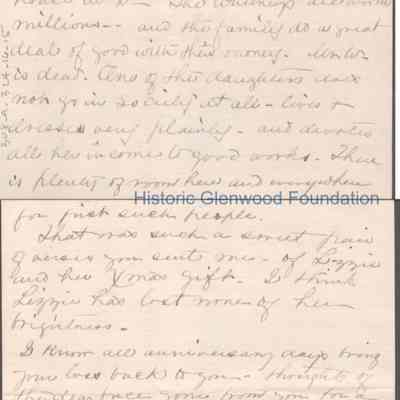 millions - and the family do a great
deal of good with their money.
is dead. One of the daughters does
not go in society at all - lives &
dresses very plainly - and devotes
all her income to good works. There
is plenty of room here and everywhere
Historic Glenwood Foundation
for just such people.
That was such a sweet
of verses you sent me - of Lizzie
and her Xmas gift. I think
Lizzie has lost none of her
brightness -
I know all anniversary days bring
your loss back to you - thoughts of
the dear face gone from you for a